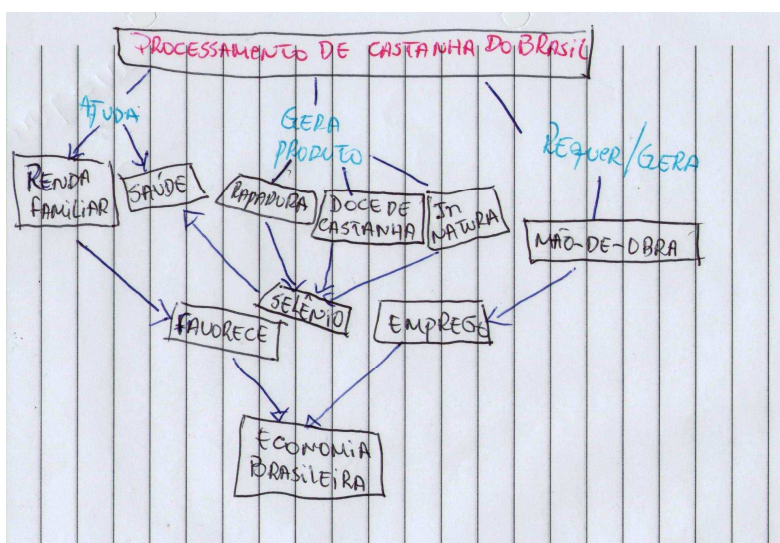 PROCESSAMENTO DE CASTANHA DO BRASIL
AJUDA
GERA
PRODUTO
REQUER/GERA
RENDA
FAMILIAR
SAÚDE
RAPADURA
DOCE DE
CASTANHA
In
NATURA
MÃO-DE-OBRA
SELÊNIO
FAVORECE
EMPREGO
ECONOMIA
BRASILEIRA